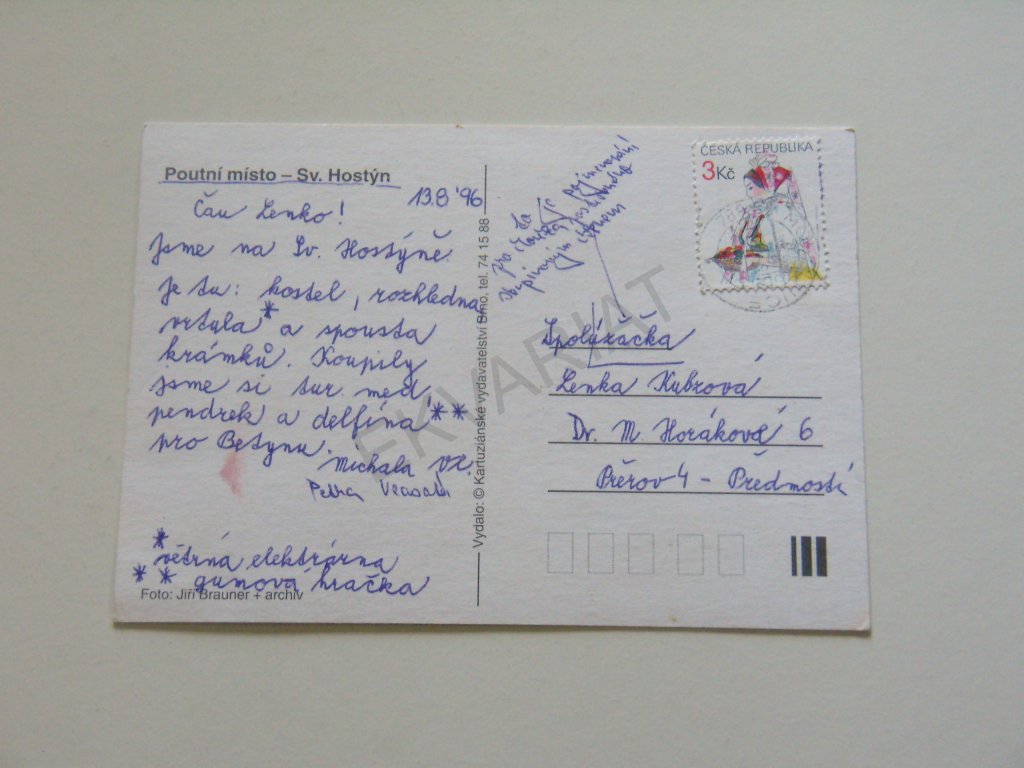 Poutní místo – Sv. Hostýn
13.8.'96
Čau Lenko!
Jsme na Sv. Hostýně.
Je tu: kostel, rozhledna,
vrtula* a spousta
krámků. Koupily
jsme si tur. med,
pendrek a delfína**
pro Betynu.
Michala
Petra
*
větrná elektrárna
** gumová hračka
Foto: Jiří Brauner + archiv
Vydalo: © Kartuziánské vydavatelství Brno, tel. 74 15 88
ČESKÁ REPUBLIKA
3Kč
Spolužačka
Lenka Kubrová
Dr. M. Horákové 6
Přerov 4 - Předmostí
EKVARIAT